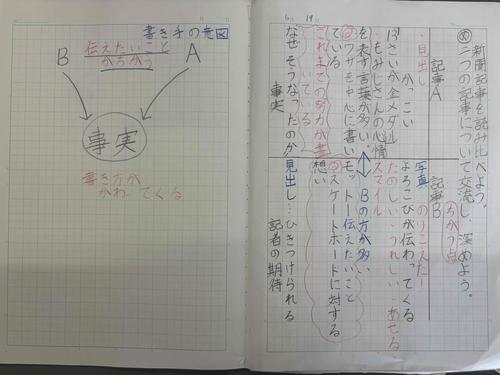 6 19
め
新聞記事を読み比べよう。
二つの記事について交流し、深めよう。
ちがう点
記事A
見出し
かっこい
13さいが金メダル
もみじさんの心情
を表す言葉が多い。
ワザを中心に書い
ている
これまでの努力が書
いている
なぜそうなったのか
事実
記事B
写真
のりこえた!
よろこびが伝わってくる
たのしい…うれしい…あせる
スマイル
Bの方が多い
モットー伝えたいこと
スケートボードに対する
想い
見出し…ひきつけられる
記者の期待
書き手の意図
A
伝えたいこと
がちがう
B
事実
書き方が
かわってくる